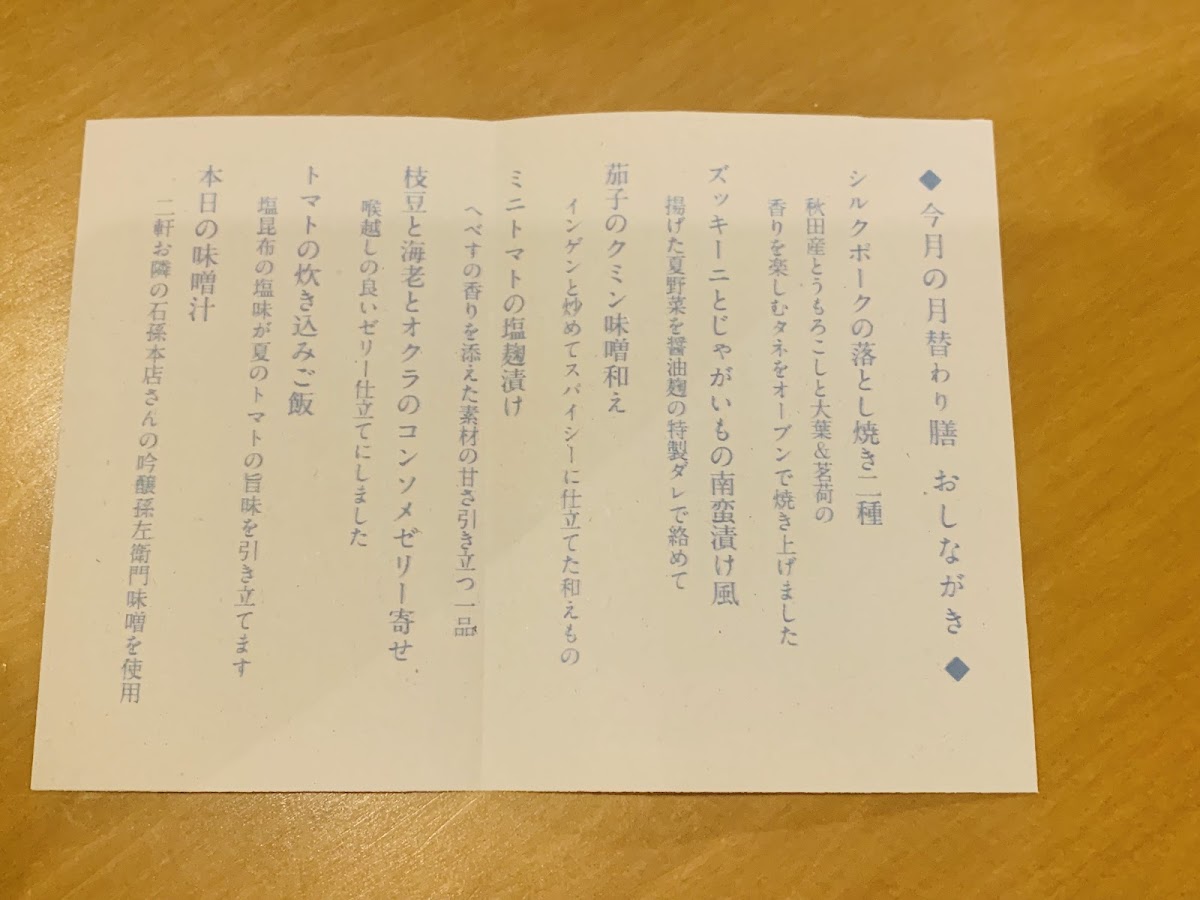 ◆今月の月替わり膳 おしながき◆
シルクポークの落とし焼き二種
秋田産とうもろこしと大葉&茗荷の
香りを楽しむタネをオーブンで焼き上げました
ズッキーニとじゃがいもの南蛮漬け風
揚げた夏野菜を醤油麹の特製ダレで絡めて
茄子のクミン味噌和え
インゲンと炒めてスパイシーに仕立てた和えもの
ミニトマトの塩麹漬け
へべすの香りを添えた素材の甘さ引き立つ一品
枝豆と海老とオクラのコンソメゼリー寄せ
喉越しの良いゼリー仕立てにしました
トマトの炊き込みご飯
塩昆布の塩味が夏のトマトの旨味を引き立てます
本日の味噌汁
二軒お隣の石孫本店さんの吟醸孫左衛門味噌を使用